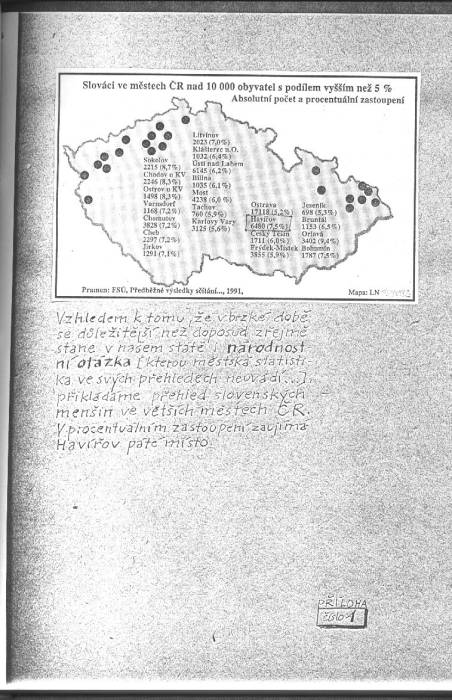 Slováci ve městech ČR nad 10 000 obyvatel s podílem vyšším než 5 %
Absolutní počet a procentuální zastoupení
Sokolov
2215 (8,7%)
Chodov u KV
2246 (8,3%)
Ostrov u KV
1498 (8,3%)
Varnsdorf
1168 (7,2%)
Chomutov
3828 (7,2%)
Cheb
2297 (7,2%)
Jirkov
1291 (7,1%)
Litvínov
2023 (7,0%)
Klášterec n.O.
1032 (6,4%)
Ústí nad Labem
6145 (6,2%)
Bílina
1035 (6,1%)
Most
4238 (6,0 %)
Tachov
760 (5,9%)
Karlovy Vary
3125 (5,6%)
Ostrava
17118 (5,2%)
Havířov
6480 (7,5%)
Český Těšín
1711 (6,0%)
Frýdek-Místek
3855 (5,9%)
Jeseník
698 (5,3%)
Bruntál
1153 (6,5%)
Orlová
3402 (9,4%)
Bohumín
1787 (7,5%)
Pramen: FSÚ, Předběžné výsledky sčítání..., 1991,
Mapa: LN
Vzhledem k tomu, že v brzké době
se důležitější než doposud zřejmě
stane v našem státě i národnost
ní otázka [kterou městská statisti
ka ve svých přehledech neuvádí...],
přikládáme přehled slovenských
menšin ve větších městech ČR.
V procentuálním zastoupení zaujímá
Havířov páté místo.
PŘÍLOHA
číslo 1